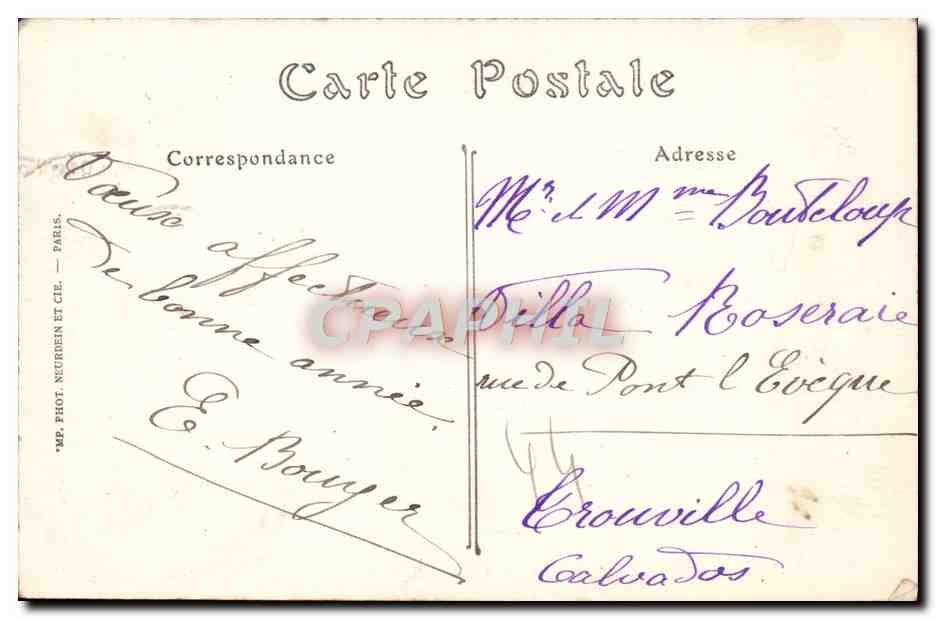 Carte Postale
Correspondance
Voeux affectueux
de bonne année.
E. Bouyer
Adresse
Mr. et Mme Bouteloup
Villa Roseraie
rue de Pont l'Evèque
44
Trouville
Calvados.
IMP. PHOT. NEURDEIN ET CIE. — PARIS.
CPAPHIL